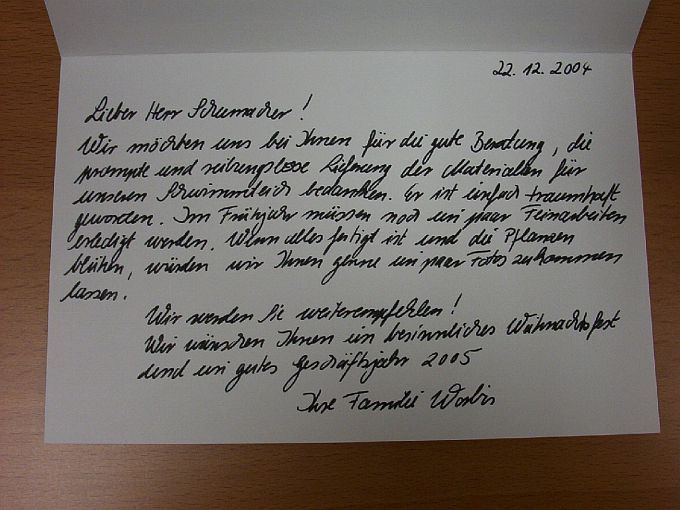 22.12.2004
Lieber Herr Schumacher!
Wir möchten uns bei Ihnen für die gute Beratung, die
prompte und reibungslose Lieferung der Materialien für
unseren Schwimmteich bedanken. Er ist einfach traumhaft
geworden. Im Frühjahr müssen noch ein paar Feinarbeiten
erledigt werden. Wenn alles fertig ist und die Pflanzen
blühen, würden wir Ihnen gerne ein paar Fotos zukommen
lassen.
Wir werden Sie weiterempfehlen!
Wir wünschen Ihnen ein besinnliches Weihnachtsfest
und ein gutes Geschäftsjahr 2005
Ihre Familie Worbis